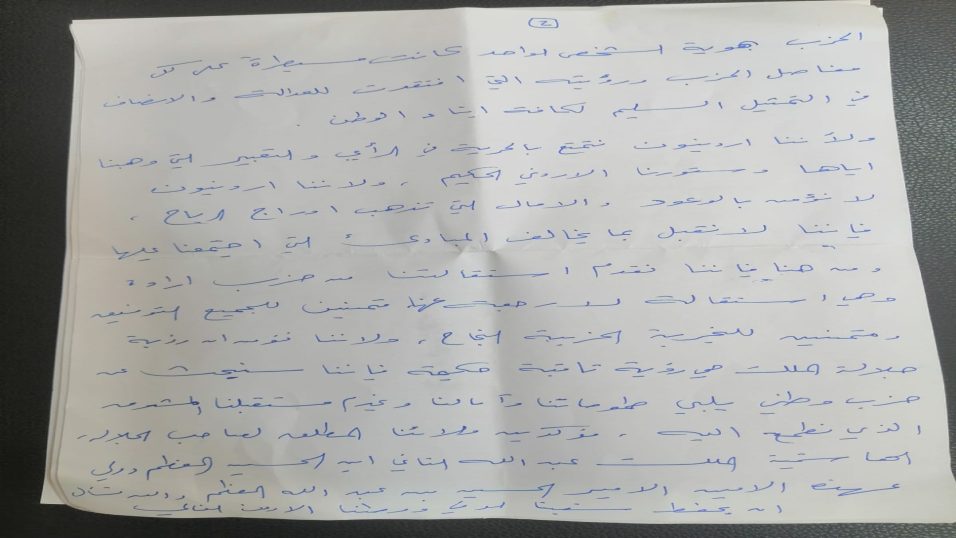 2
الحزب بهوية لشخص واحد كانت مسيطرة على كل
مفاصل الحزب ورؤيته التي افتقدت للعدالة والانصاف
في التمثيل السليم لكافة ابناء الوطن .
ولأننا اردنيون نتمتع بالحرية في الرأي والتعبير التي وهبنا
اياها دستورنا الاردني الحكيم ، ولاننا اردنيون
لا نؤمن بالوعود والامال التي تذهب ادراج الرياح ،
فاننا لا نقبل بما يخالف المبادئ التي اجتمعنا عليها
ومن هنا فاننا نقدم استقالتنا من حزب ارادة
وهي استقالة لا رجعت عنها متمنين للجميع التوفيق
ومتمنين للتجربة الحزبية النجاح ، ولاننا نؤمن ان رؤية
جلالة الملك هي رؤية ثاقبة حكيمة فاننا سنبحث عن
حزب وطني يلبي طموحاتنا وآمالنا مستقبلنا المشرق
الذي نطمح اليه ، مؤكدين ولائنا المطلق لصاحب الجلالة
الهاشمية الملك عبد الله الثاني ابن الحسين المعظم وولي
عهده الامين الامير الحسين بن عبد الله المعظم والله نسأل
ان يحفظ الاردن